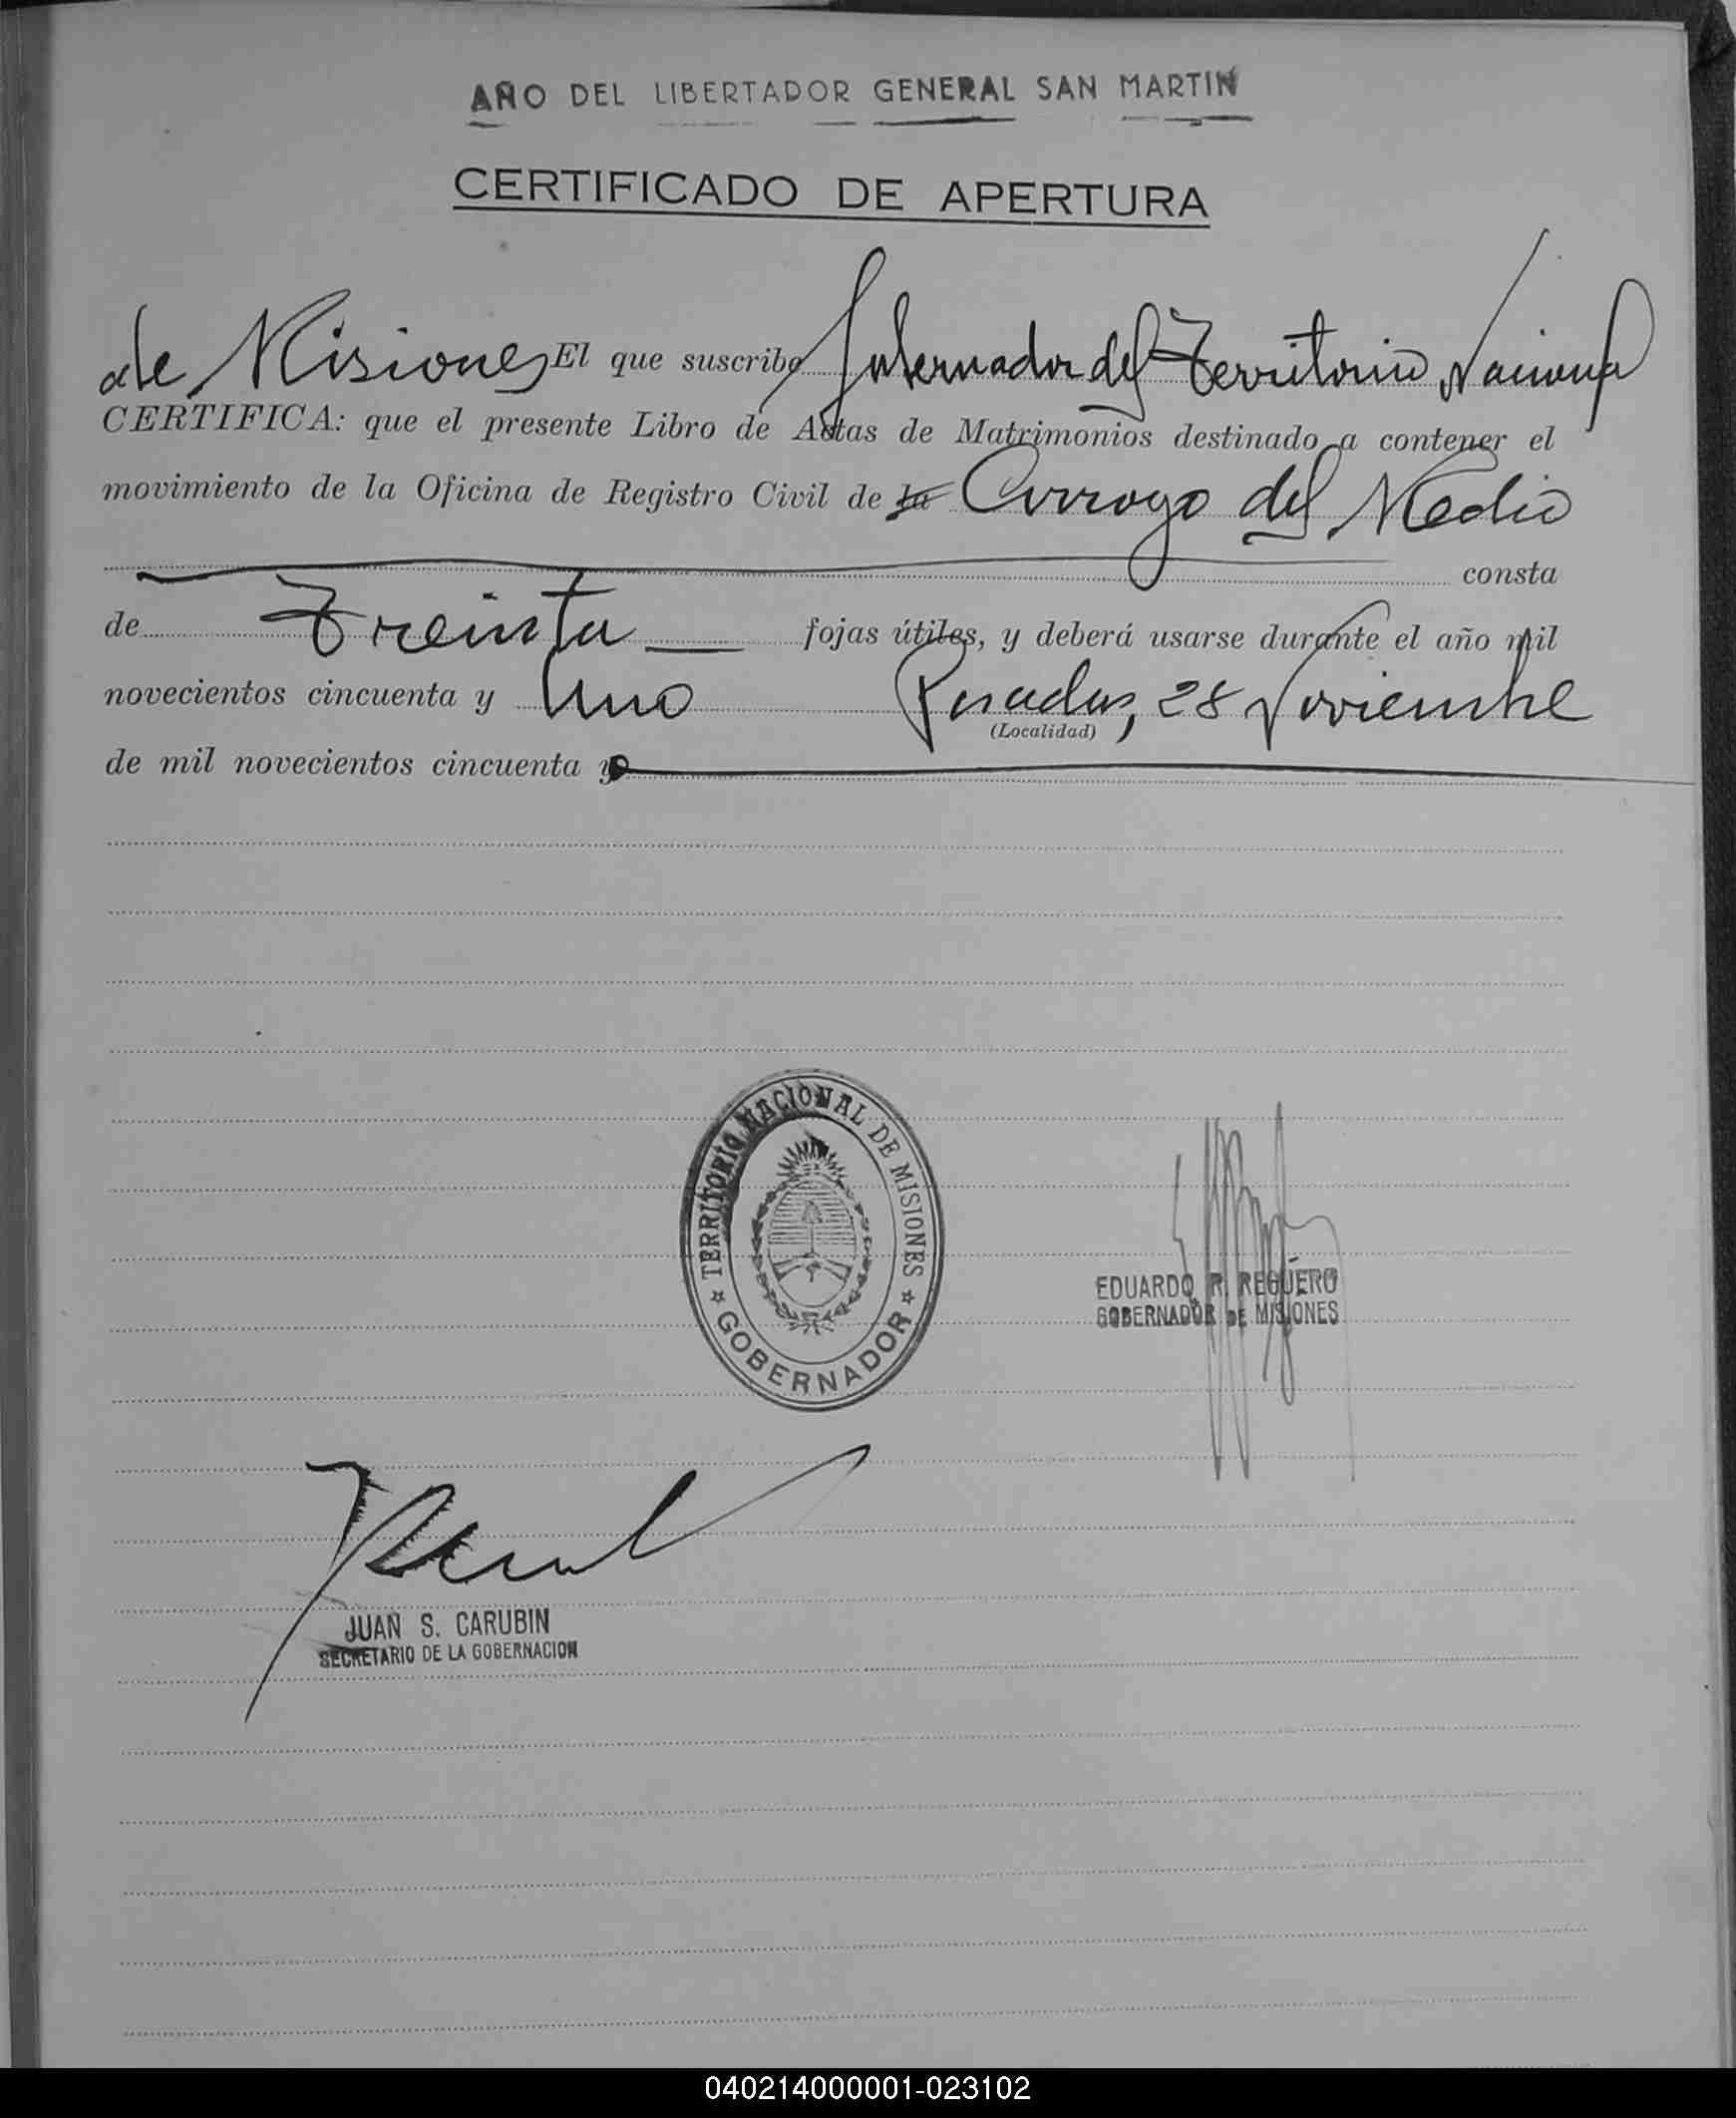 AÑO DEL LIBERTADOR GENERAL SAN MARTIN
CERTIFICADO DE APERTURA
de Misiones El que suscribe Gobernador del Territorio Nacional
CERTIFICA: que el presente Libro de Actas de Matrimonios destinado a contener el
movimiento de la Oficina de Registro Civil de la Arroyo del Medio
consta
de Treinta fojas útiles, y deberá usarse durante el año mil
novecientos cincuenta y Uno Posadas, 28 Noviembre
(Localidad)
de mil novecientos cincuenta y
TERRITORIO NACIONAL DE MISIONES
GOBERNADOR
EDUARDO R. REGUERO
GOBERNADOR DE MISIONES
JUAN S. CARUBIN
SECRETARIO DE LA GOBERNACION
040214000001-023102